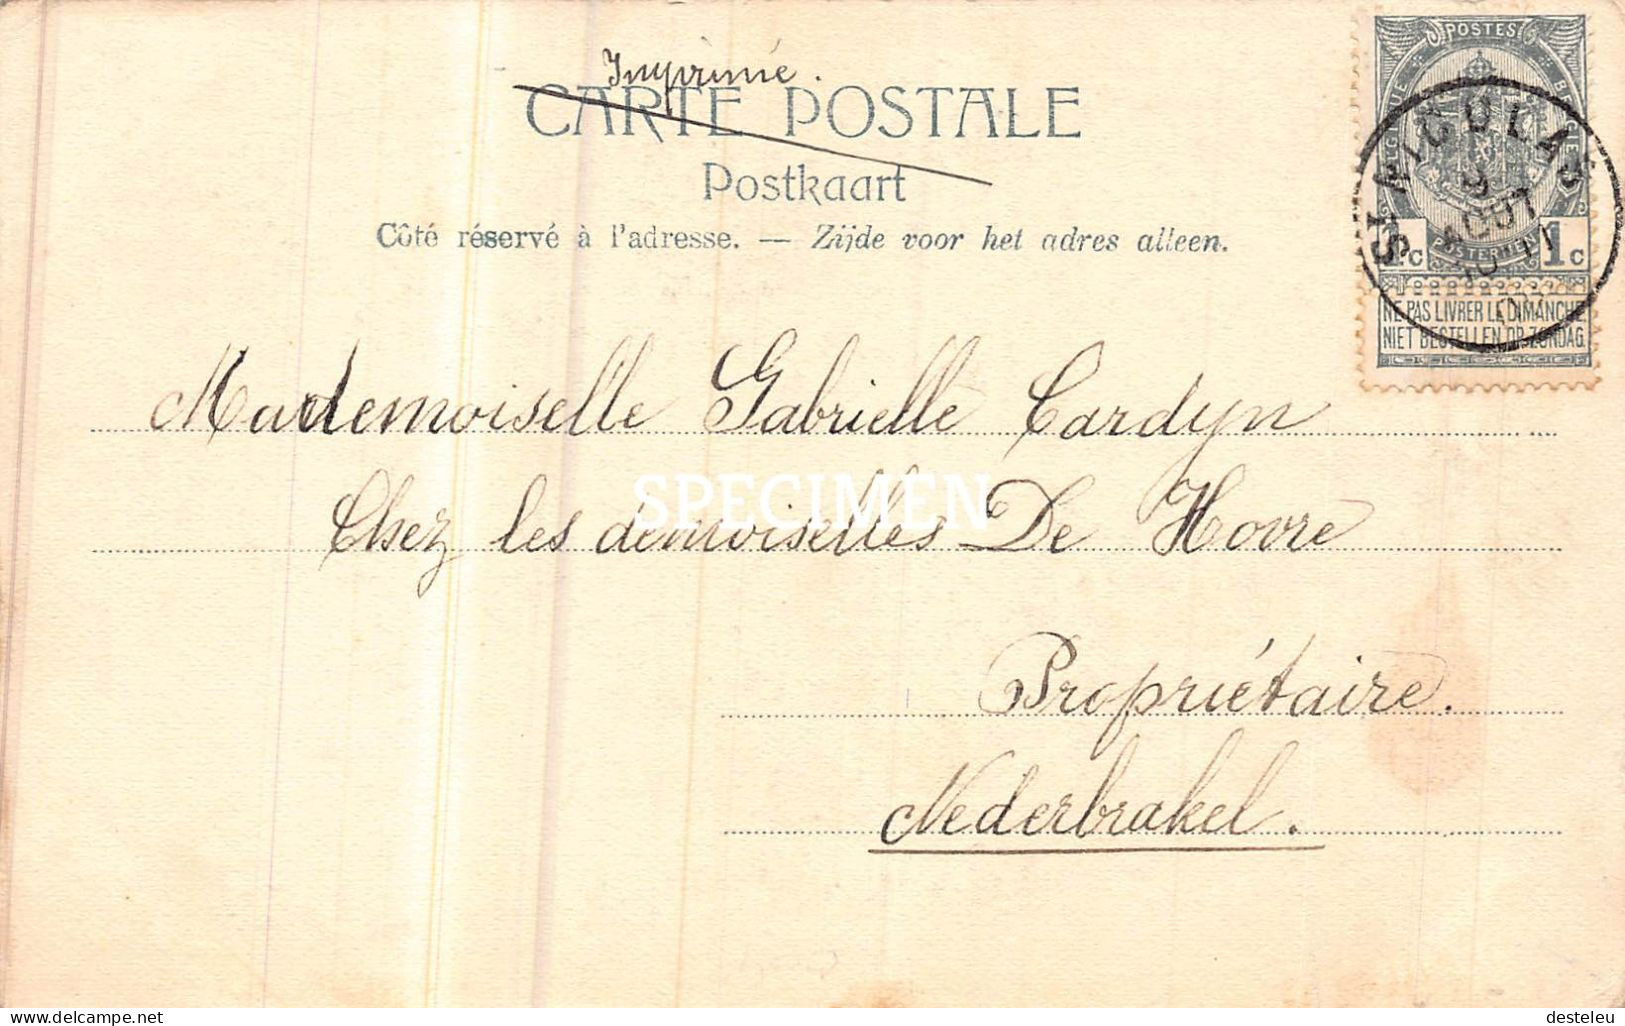 Imprimé.
CARTE POSTALE
Postkaart
Côté réservé à l'adresse. — Zijde voor het adres alleen.
POSTES
BELGIQUE BELGIE
POSTERIJEN
1 c 1 c
NE PAS LIVRER LE DIMANCHE
NIET BESTELLEN OP ZONDAG
ST NICOLAS
AOUT
Mademoiselle Gabrielle Cardyn
Chez les demoiselles De Hovre
SPECIMEN
Propriétaire.
Nederbrakel.
Delcampe.net
desteleu